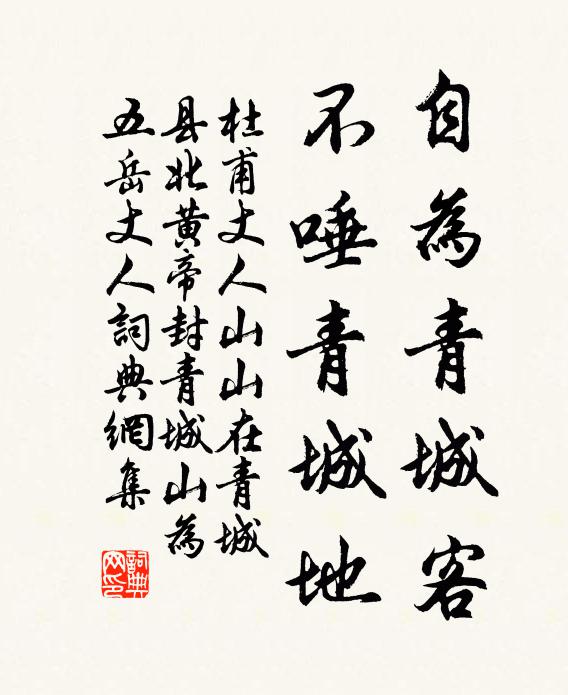 自為青城客
不唾青城地
杜甫丈人山山在青城
县北黄帝封青城山為
五岳丈人詞典網集
詞典
网印